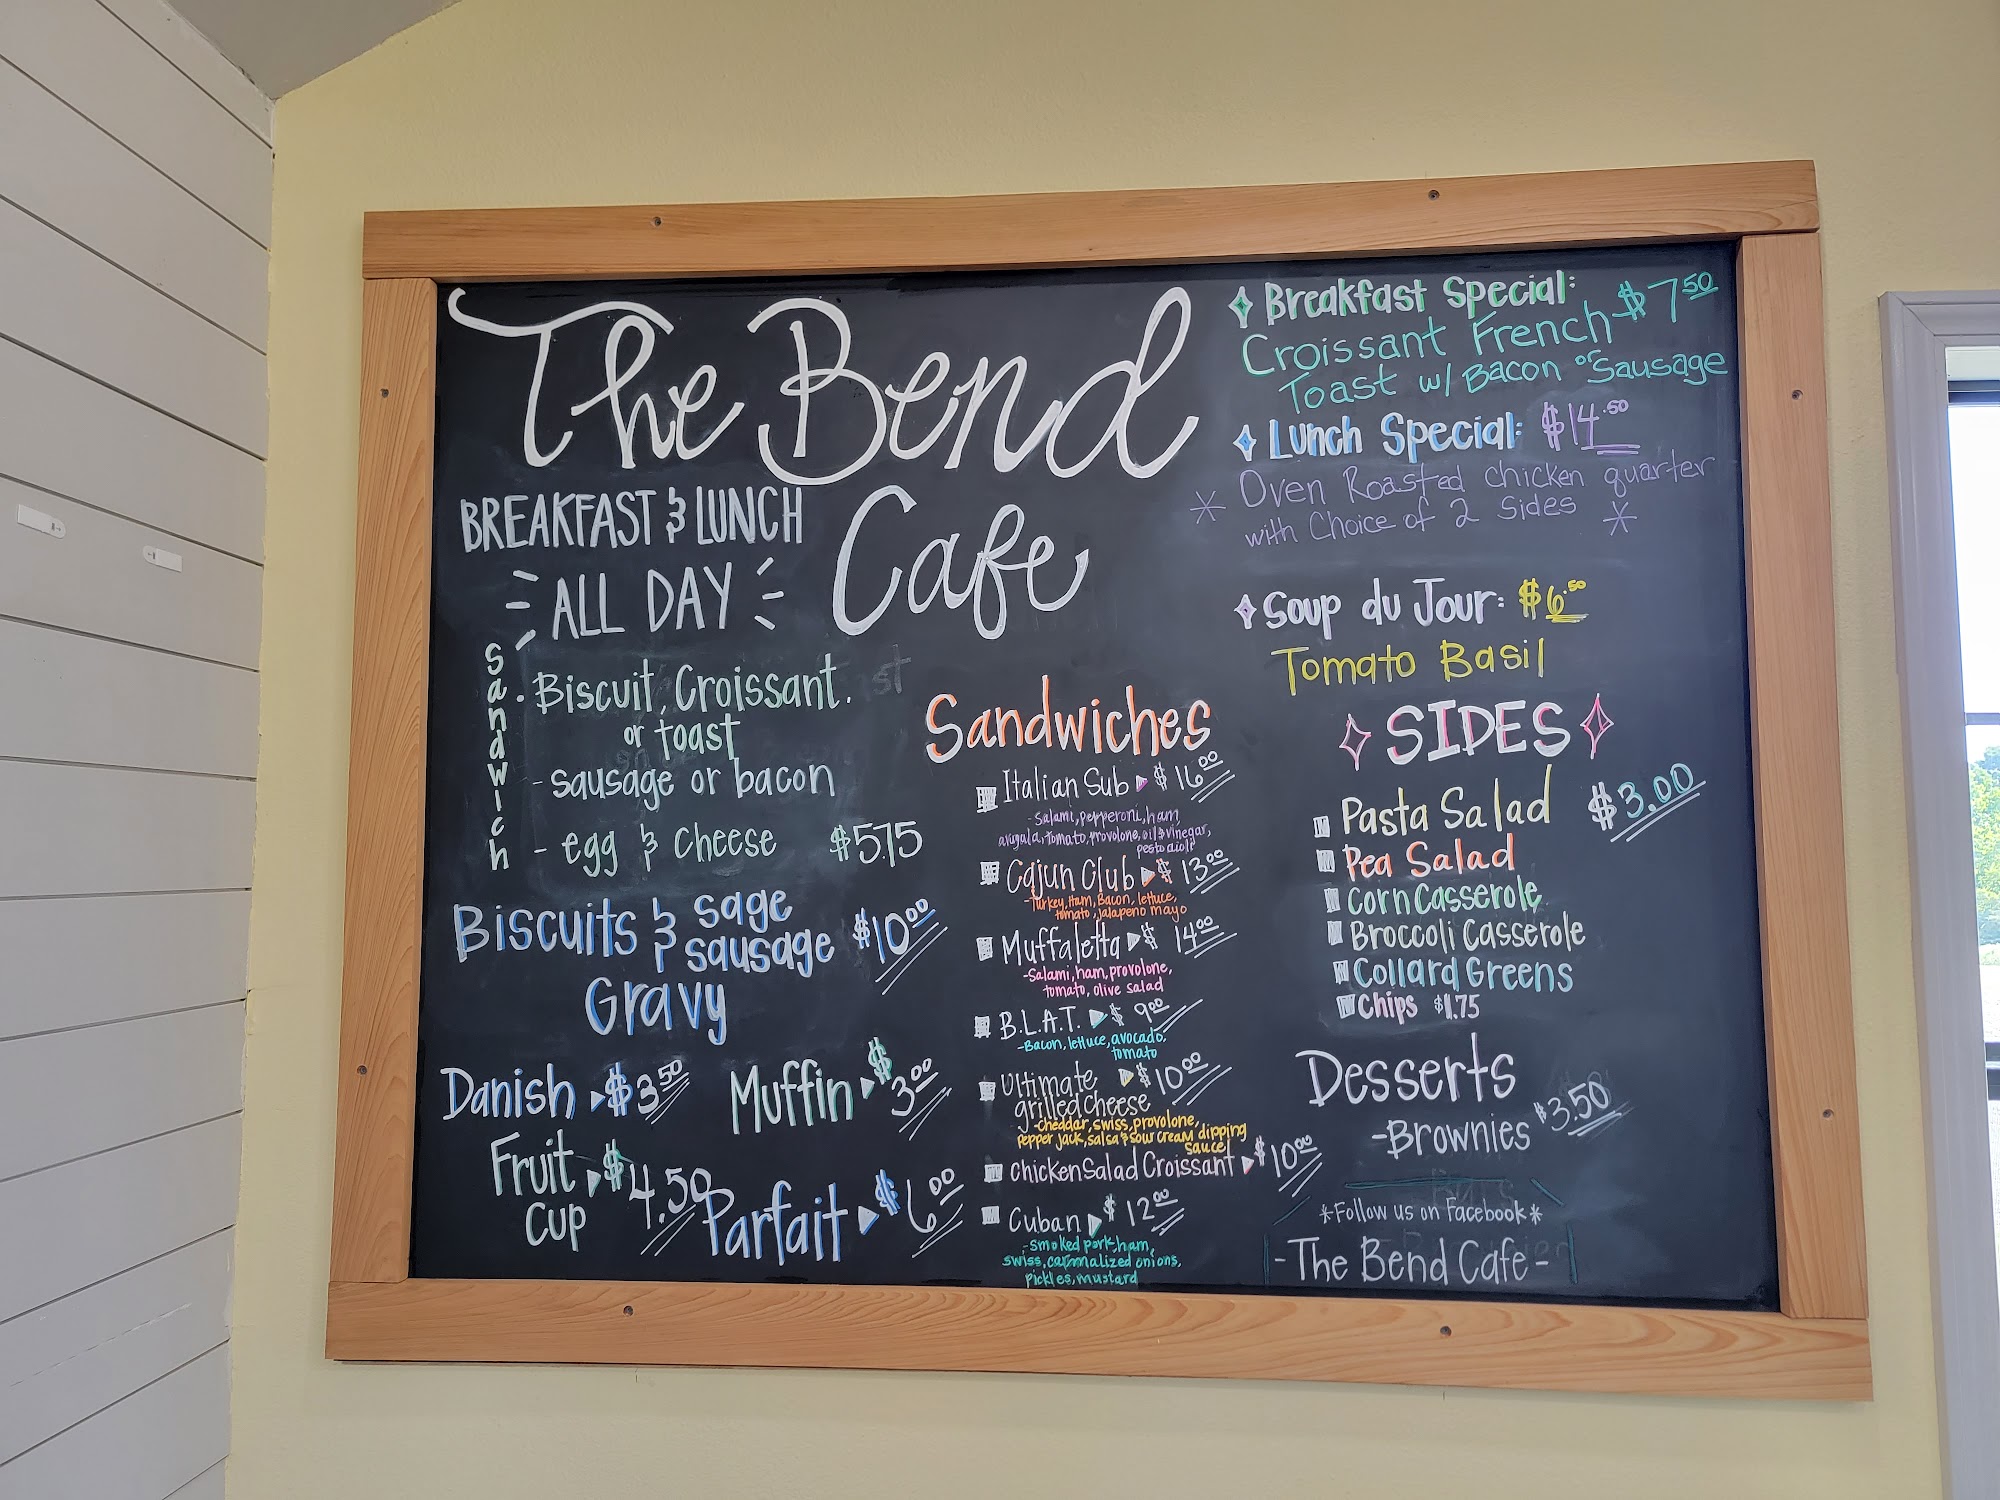 The Bend
Cafe
BREAKFAST & LUNCH
ALL DAY
Sandwich
· Biscuit, Croissant.
or toast
- sausage or bacon
- egg & cheese $5.75
Biscuits & sage sausage $10.00
Gravy
Danish $3.50
Muffin $3.00
Fruit Cup $4.50
Parfait $6.00
Sandwiches
Italian Sub $16.00
- Salami, pepperoni, ham,
arugula, tomato, provolone, oil & vinegar,
pesto aioli
Cajun Club $13.00
- Turkey, Ham, Bacon, lettuce,
tomato, jalapeno mayo
Muffaletta $14.00
- Salami, ham, provolone,
tomato, olive salad
B.L.A.T. $9.00
- Bacon, lettuce, avocado,
tomato
Ultimate $10.00
grilled cheese
- cheddar, swiss, provolone,
pepper jack, salsa & sour cream dipping
sauce
chicken Salad Croissant $10.00
Cuban $12.00
- smoked pork, ham,
swiss, carmalized onions,
pickles, mustard
Breakfast Special:
Croissant French $7.50
Toast w/ Bacon or Sausage
Lunch Special: $14.50
* Oven Roasted chicken quarter
with Choice of 2 Sides *
Soup du Jour: $6.50
Tomato Basil
SIDES
Pasta Salad $3.00
Pea Salad
Corn Casserole
Broccoli Casserole
Collard Greens
Chips $1.75
Desserts
- Brownies $3.50
*Follow us on Facebook*
- The Bend Cafe -